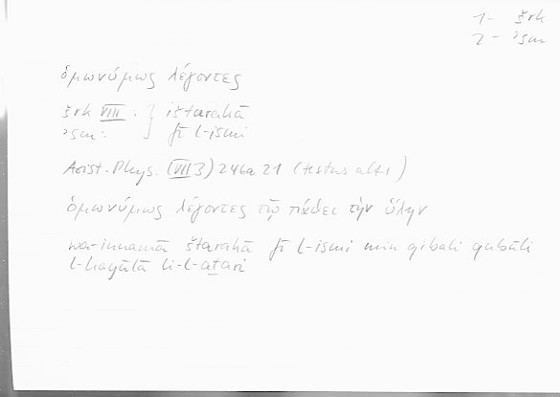 1 – šrk
2 – ʾsm
ὁμωνύμως λέγοντες
šrk VIII : } ištarakā
ʾsm : } fī l-ismi
Arist. Phys. (VII 3) 246a 21 (textus alter)
ὁμωνύμως λέγοντες τῷ πάθει τὴν ὕλην
wa-innamā štarakā fī l-ismi min qibali qubūli
l-hayūlā li-l-aṯari